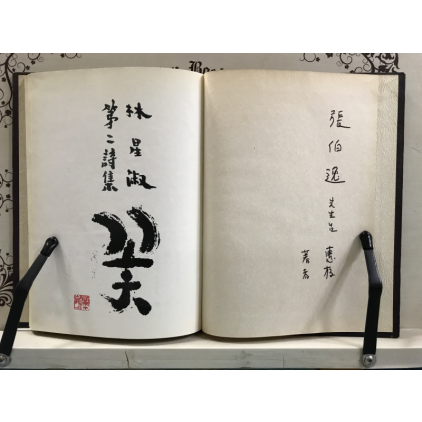 林星淑
第二詩集
꽃
張伯逸 先生님 惠存
著者